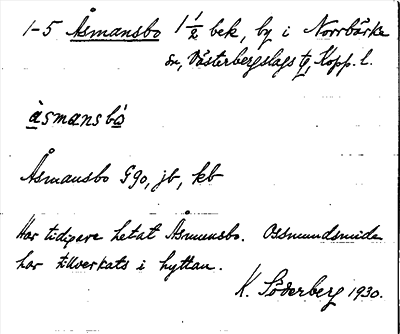 1-5 Åsmansbo 1 1/2 bek, by i Norrbärke
sn, Västerbergslags tg, Kopp. l.
àsmansbó
Åsmansbo G90, jb, kb
Har tidigare hetat Åsmunsbo. Ossmundsmide
har tillverkats i hyttan.
K. Söderberg 1930.